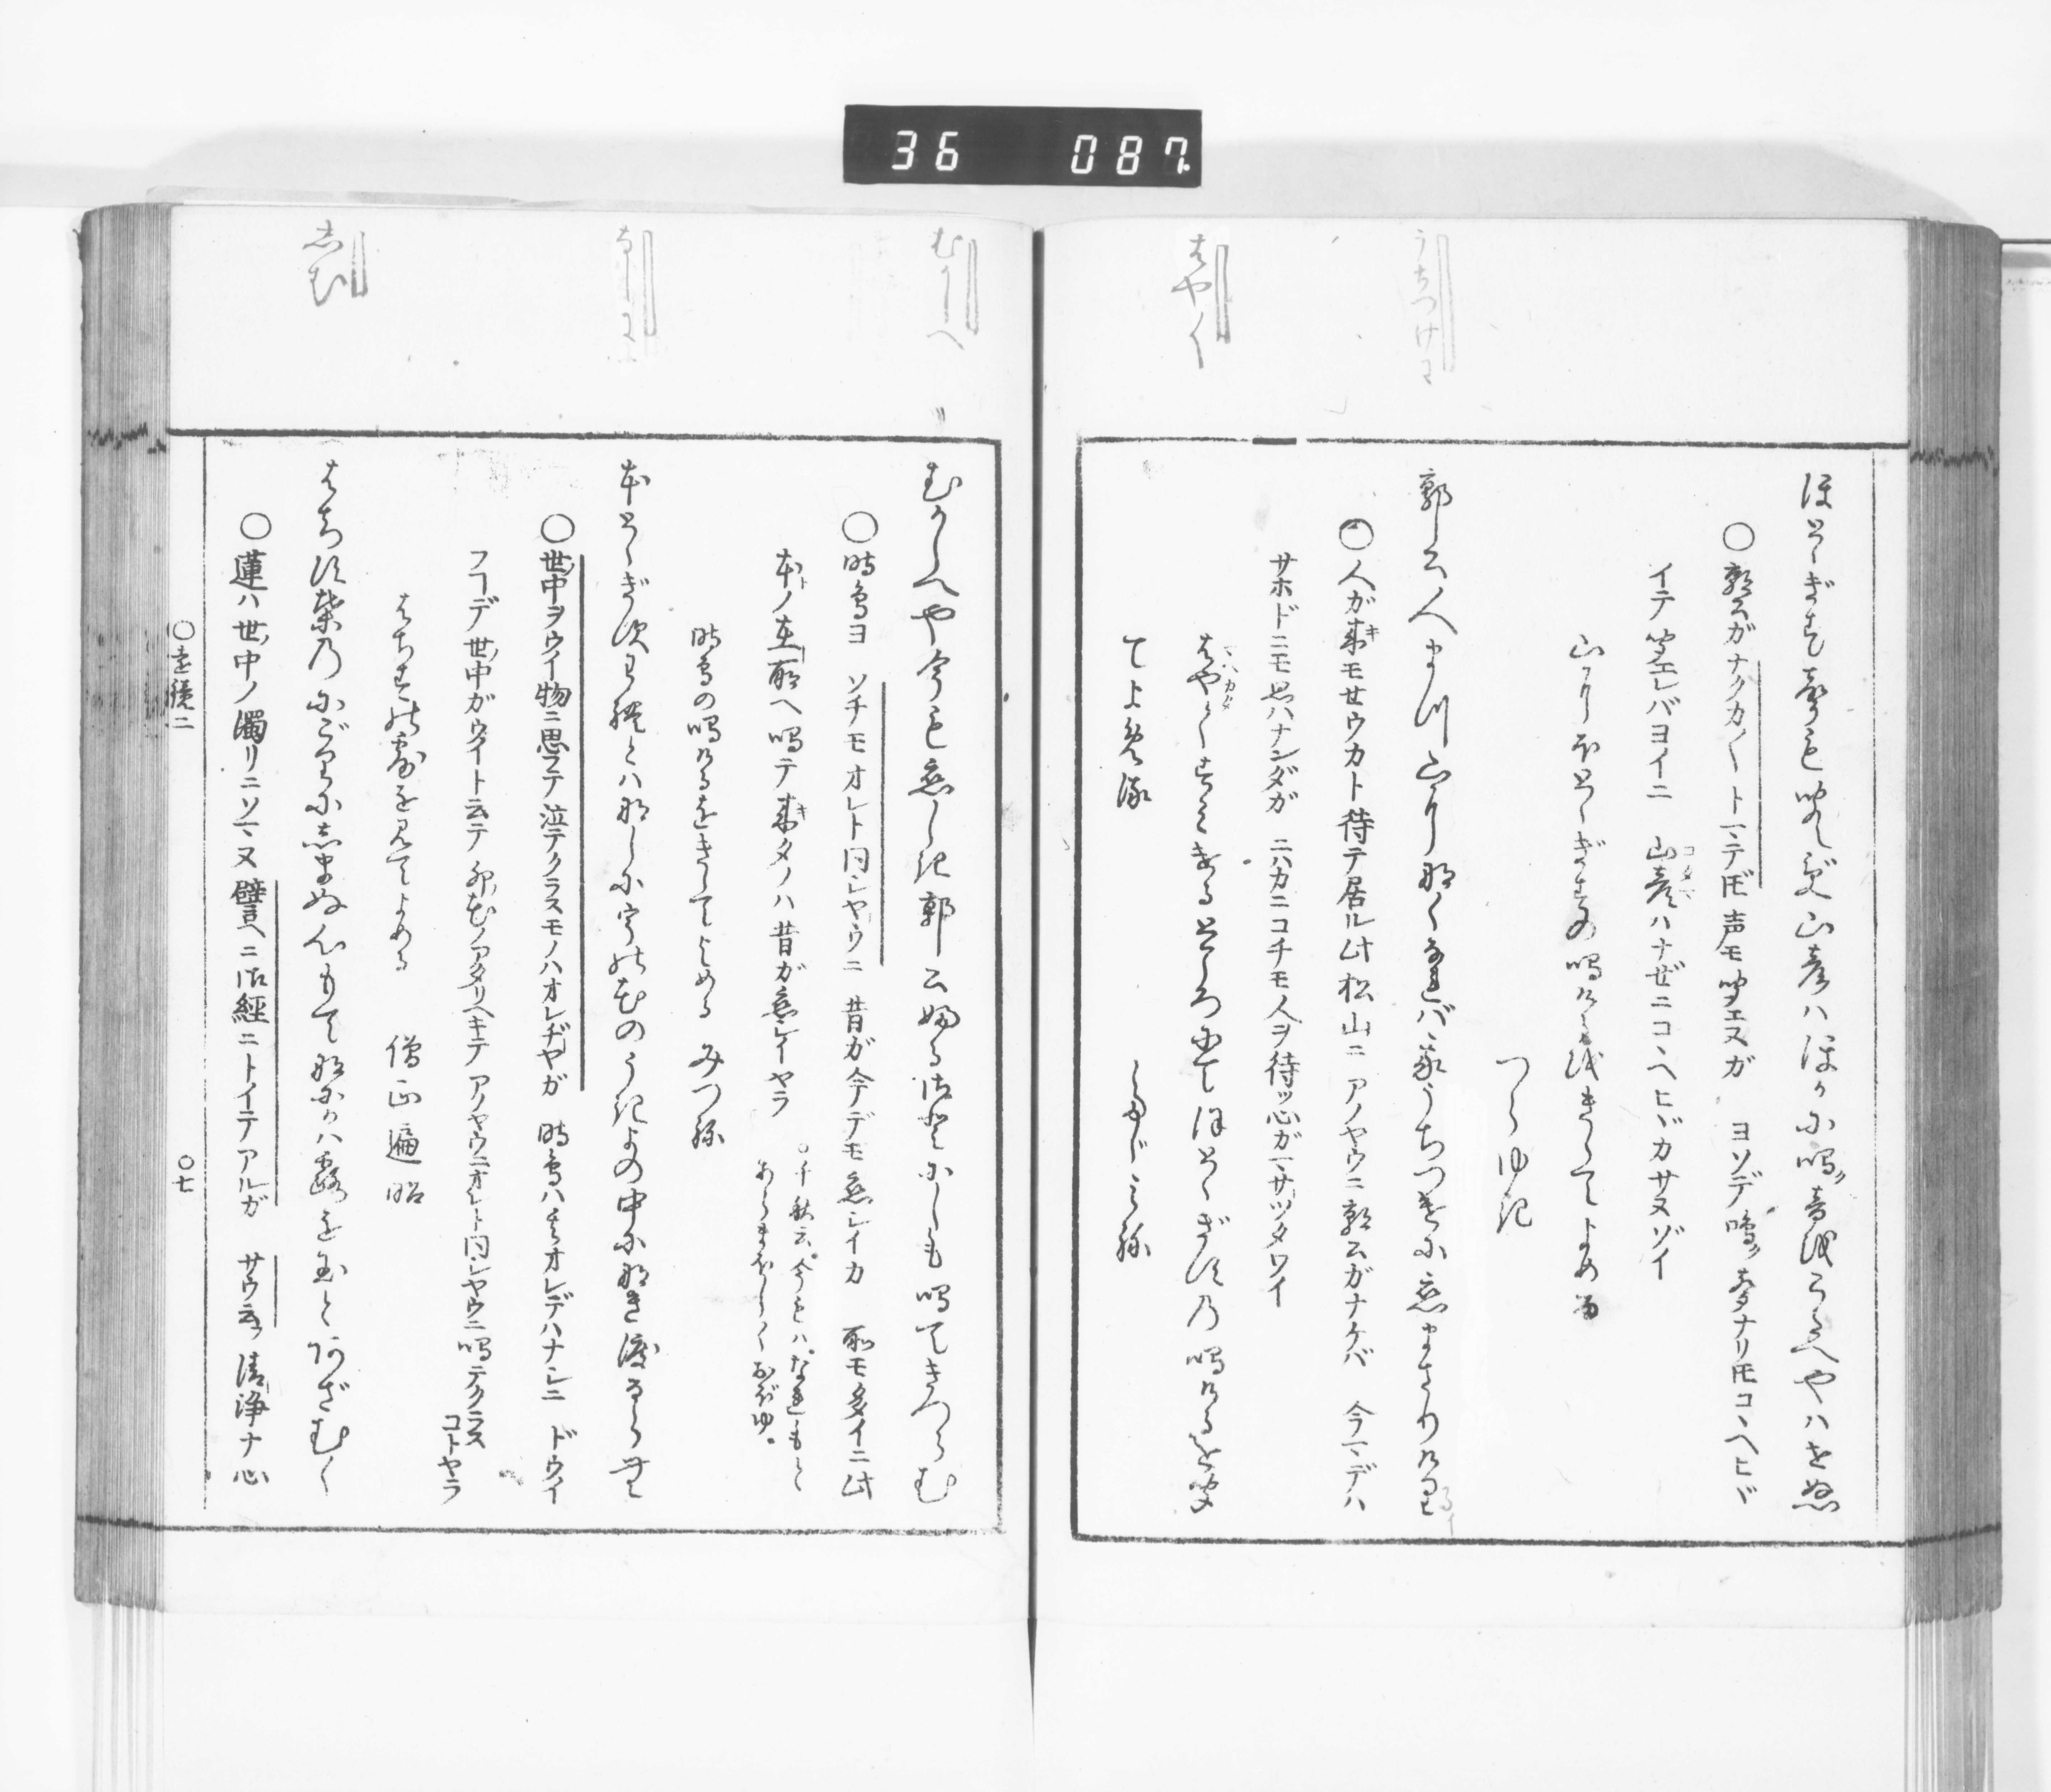 36 087
うちつけに
はやく
ほとゝぎす聲も聞えず山彦ハほかに鳴ク音をこたへやハせぬ
○郭公ガナクカ〱トマテドモ声モ聞エヌガ ヨソデ鳴ク声ナリトモコヽヘヒヾ
イテ聞エレバヨイニ 山彦ハナゼニコヽヘヒヾカサヌゾイ
山にほとゝぎすの鳴けるをきゝてよめる
つらゆき
郭公人まつ山に那くなれバ我うちつけに恋まさりけり
○人ガ来モセウカト待テ居ル此松山ニ アノヤウニ郭公ガナケバ 今マデハ
サホドニモ思ハナンダガ ニハカニコチモ人ヲ待ツ心ガマサツタワイ
はやくすみけるところにてほとゝぎすの鳴けるを聞
てよめる
たゞみね
むかしへ
なにし
しむ
むかしへや今も恋しき郭公ふるさとにしも鳴てきつらむ
○時鳥ヨ ソチモオレト同シヤウニ 昔ガ今デモ恋シイカ 所モ多イニ此
本ノ在所ヘ鳴テ来タノハ昔ガ恋シイヤラ
○千秋云今もハなれもと
あらまほしくおぼゆ
時鳥の鳴けるをきゝてよめる みつね
ほとゝぎす我とハ那しに宇の花のうき世の中に那き渡るらむ
○世中ヲウイ物ニ思フテ泣テクラスモノハオレヂヤガ 時鳥ハオレデハナシニ ドウイ
フコデ世中ガウイト云テ 卯花ノアタリヘキテ アノヤウニオレト同シヤウニ鳴テクラス
コトヤラ
はちすの露を見てよめる 僧正遍昭
はちす葉のにごりにしまぬ心もて那にかハ露を玉とあざむく
○蓮ハ世ノ中ノ濁リニソマヌ譬ヘニ御經ニトイテアルガ サウ云フ清浄ナ心
○遠鏡二 ○七